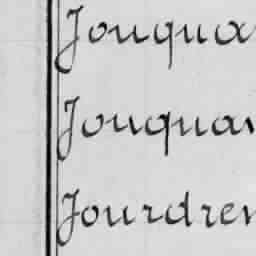 Jouqua
Jouquar
Jourdren